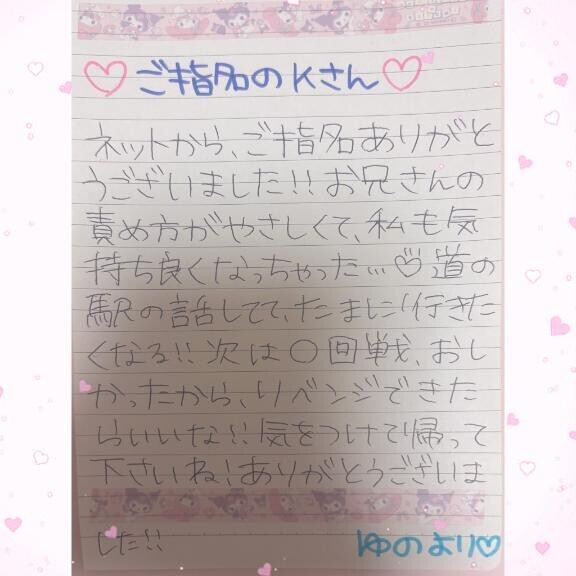 ♡ご指名のKさん♡
ネットから、ご指名ありがと
うございました!!お兄さんの
責め方がやさしくて、私も気
持ち良くなっちゃった…♡道の
駅の話してて、たまに行きた
くなる!!次は〇回戦、おし
かったから、リベンジできた
らいいな!!気をつけて帰って
下さいね!ありがとうございま
した!!
ゆのより♡